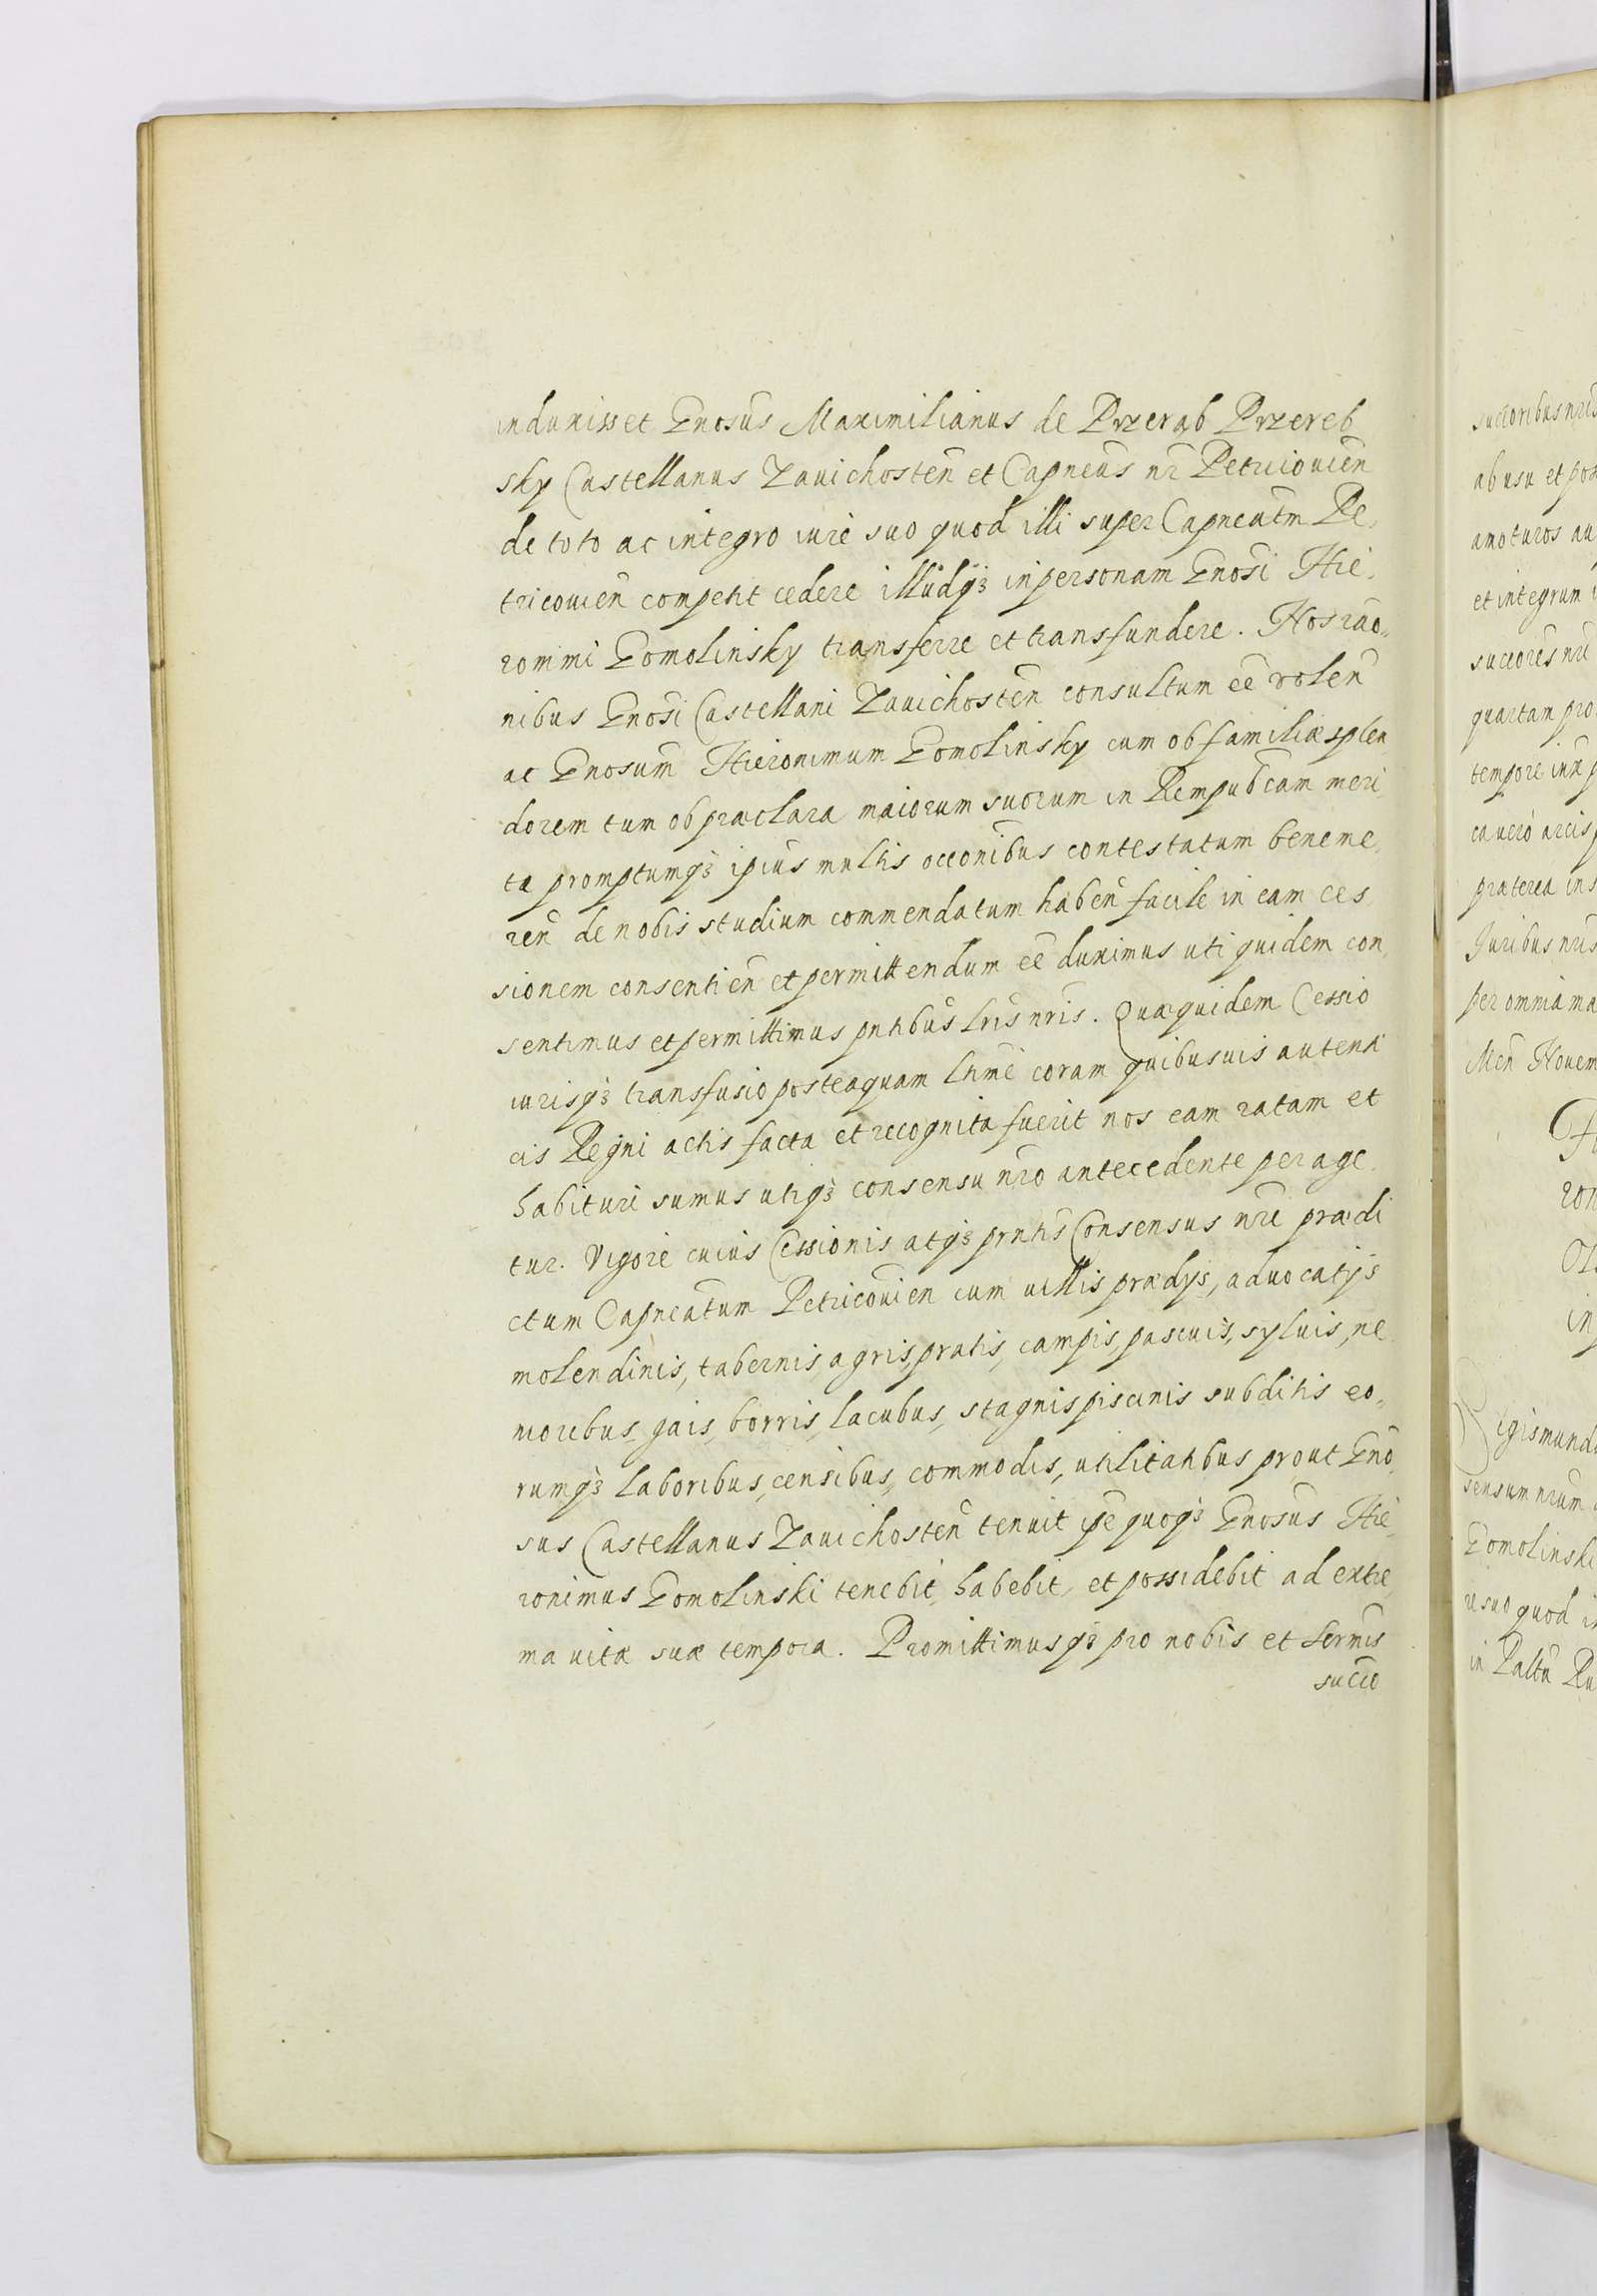 induxisset Gnosūs Maximilianus de Przerąb Przereb
sky Castellanus Zauichosteñ et Capneūs nr̄ Petricouieñ
de toto ac integro iure suo quod illi super Capneatm̄ Pe,
tricouieñ competit cedere illudq3 in personam Gnosi Hie,
ronimi Gomolinsky transferre et transfundere. Nos rāo,
nibus Gnosi Castellani Zauichosteñ consultum eē voleñ
ac Gnosum̄ Hieronimum Gomolinsky cum ob familiæ splen
dorem tum ob præclara maiorum suorum in Rempub̄cam meri
ta promptumq3 ipius multis occōnibus contestatum beneme,
reñ de nobis studium commendatum habeñ facile in eam ces
sionem consentieñ et permittendum eē duximus uti quidem con,
sentimus et permittimus pntibūs lrīs nrīs. Quæquidem Cessio
iurisq3 transfusio posteaquam ltimē coram quibusuis autenti
cis Regni actis facta et recognita fuerit nos eam ratam et
habituri sumus utiq3 consensu nrō antecedente perage
tur. Vigore cuius Cessionis atq3 prntīs Consensus nrī prædi
ctum Capneatum Petricouieñ cum uillis prædys, aduocatijs
molendinis, tabernis, agris, pratis, campis, pascuis, syluis, ne
moribus, gais, borris, lacubus, stagnis piscinis subditis eo,
rumq3 laboribus, censibus, commodis, utilitatibus prout Gno
sus Castellanus Zauichosteñ tenuit ipē quoq3 Gnosūs Hie,
ronimus Gomolinski tenebit, habebit, et possidebit ad extre
ma uitæ suæ tempora. Promittimusq3 pro nobis et Sermīs
succō
succōribus nrīs
ab usu et
amoturos
et integrum
succōres nrī
quartam
tempore
ca uero arcis
præterea
Juribus nrīs
per omnia
Meñ Nouem
Sigismund
sensum nrum
Gomolinski
suo quod
in